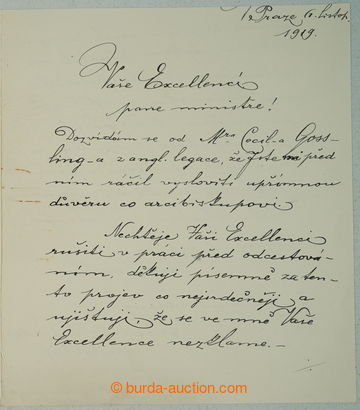 V Praze 6. listop.
1919.
Vaše Excellencí
pane ministře!
Dozvídám se od Mra Cecil-a Goss-
ling-a z angl. legace, že jste mi před
ním ráčil vysloviti upřímnou
důvěru co arcibiskupovi.
Nechtěje Vaši Excellenci
rušiti v práci před odcestová-
ním, děkuji písemně za ten-
to projev co nejsrdečněji a
ujišťuji, že se ve mně Vaše
Excellence nezklame. –
© burda-auction.com